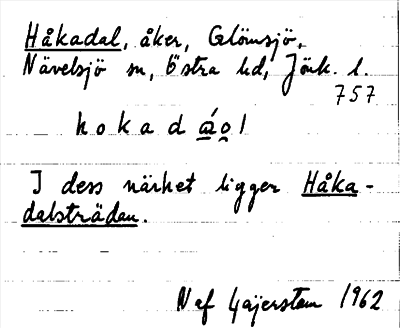 Håkadal, åker, Glömsjö,
Nävelsjö sn, Östra hd, Jönk. l.
757
hokadáo̯l
I dess närhet ligger Håka-
dalsträdan.
N af Gajerstam 1962